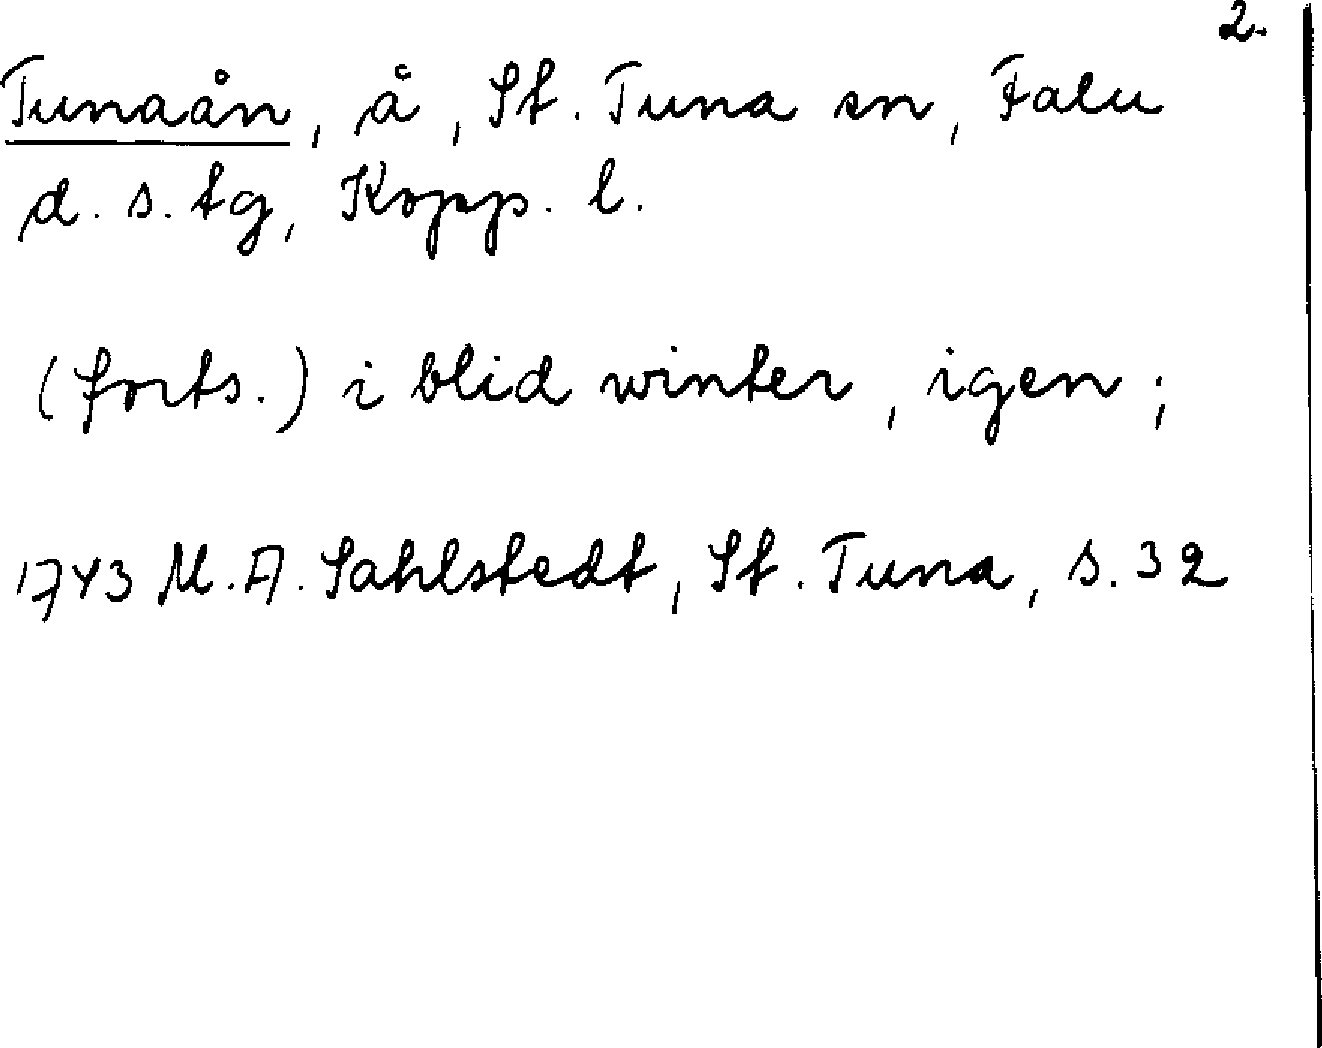 2.
Tunaån, å, St. Tuna sn, Falu
d. s. tg, Kopp. l.
(forts.) i blid winter, igen;
1743 M. A. Sahlstedt, St. Tuna, s. 32